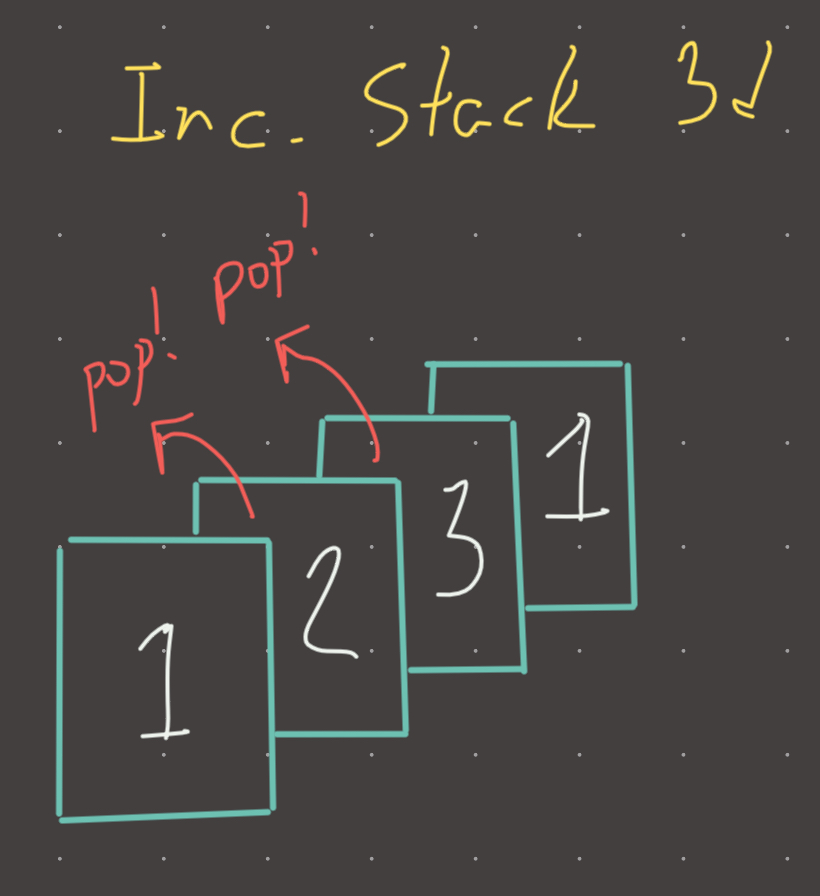 Inc. Stack 3d
pop!
pop!
1
3
2
1